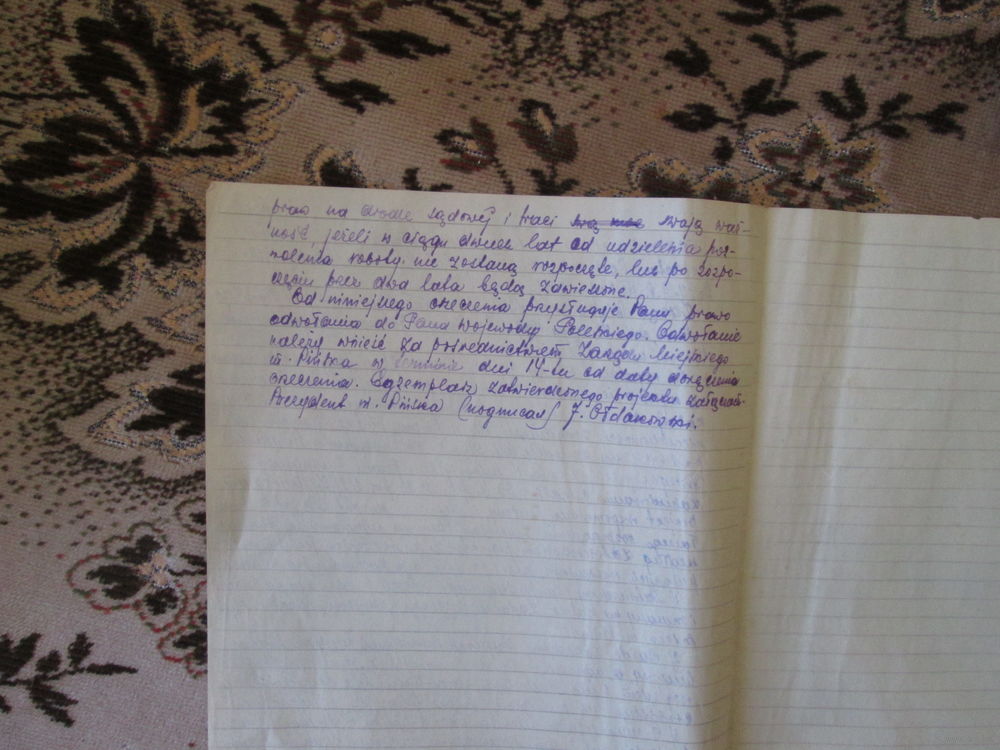 praw na drodze sądowej i traci swoją waż-
ność, jeżeli w ciągu dwuch lat od udzielenia poz-
wolenia roboty nie zostaną rozpoczęte, lub po rozpo-
częciu przez dwa lata będą zawieszone.
Od niniejszego orzeczenia przysługuje Panu prawo
odwołania do Pana Wojewody Poleskiego. Odwołanie
należy wnieść za pośrednictwem Zarządu Miejskiego
m. Pińska w terminie dni 14-tu od daty doręczenia
orzeczenia. Egzemplarz zatwierdzonego projektu
Prezydent m. Pińska (подписал) J. Ołdakowski.